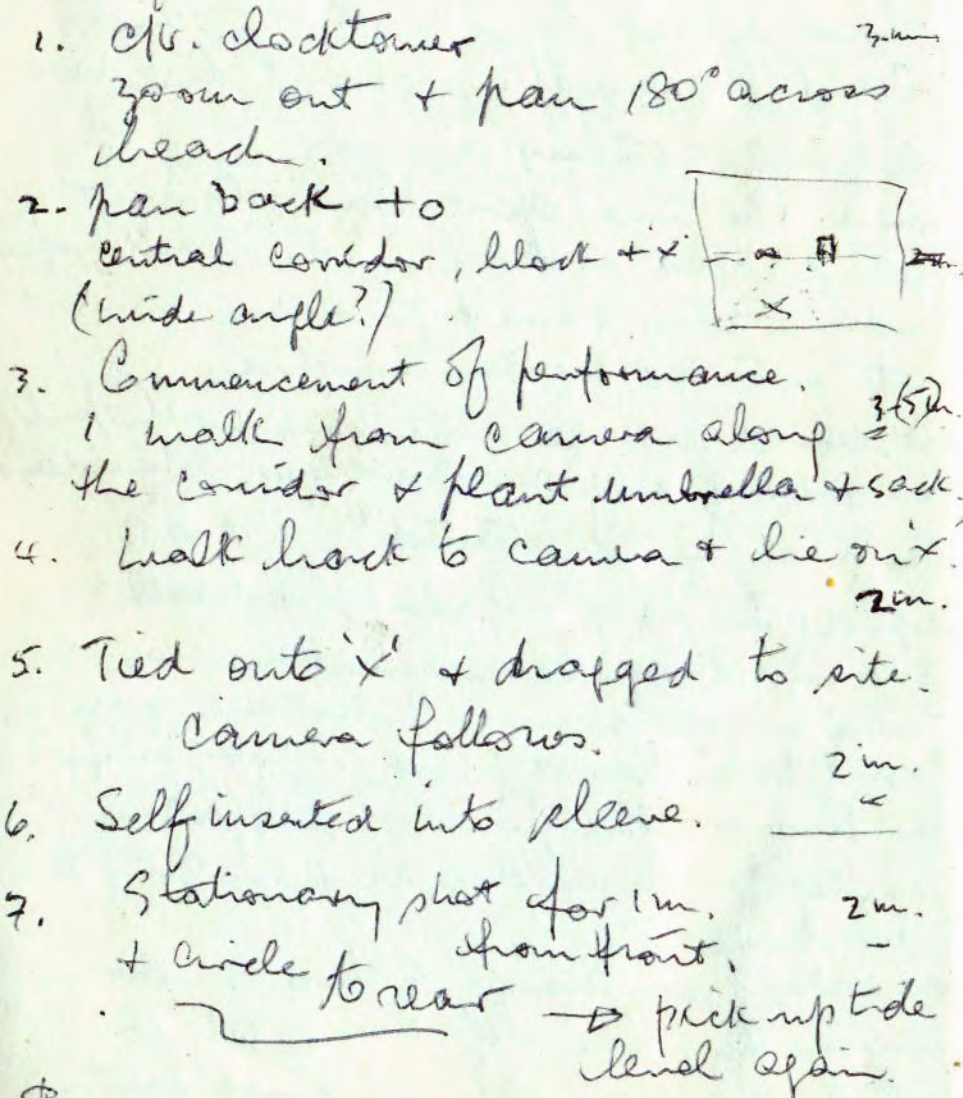 1. c/u. clocktower 3 min
zoom out + pan 180° across
beach.
2. pan back to
central corridor, block + 'x' 2m.
(wide angle?)
x
3. Commencement of performance.
I walk from camera along 3 (5)m.
the corridor & plant umbrella + sack.
4. Walk back to camera + lie on 'x'.
2m.
5. Tied onto 'x' & dragged to site.
camera follows.
2m.
6. Self inserted into sleeve.
7. Stationary shot for 1m. 2m.
+ circle from front.
to rear → pick up tide
level again.